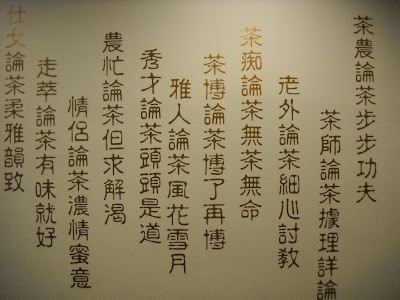 茶農論茶步步功夫
茶師論茶據理詳論
老外論茶細心討教
茶痴論茶無茶無命
茶博論茶博了再博
雅人論茶風花雪月
秀才論茶頭頭是道
農忙論茶但求解渴
情侶論茶濃情蜜意
走卒論茶有味就好
仕女論茶柔雅韻致